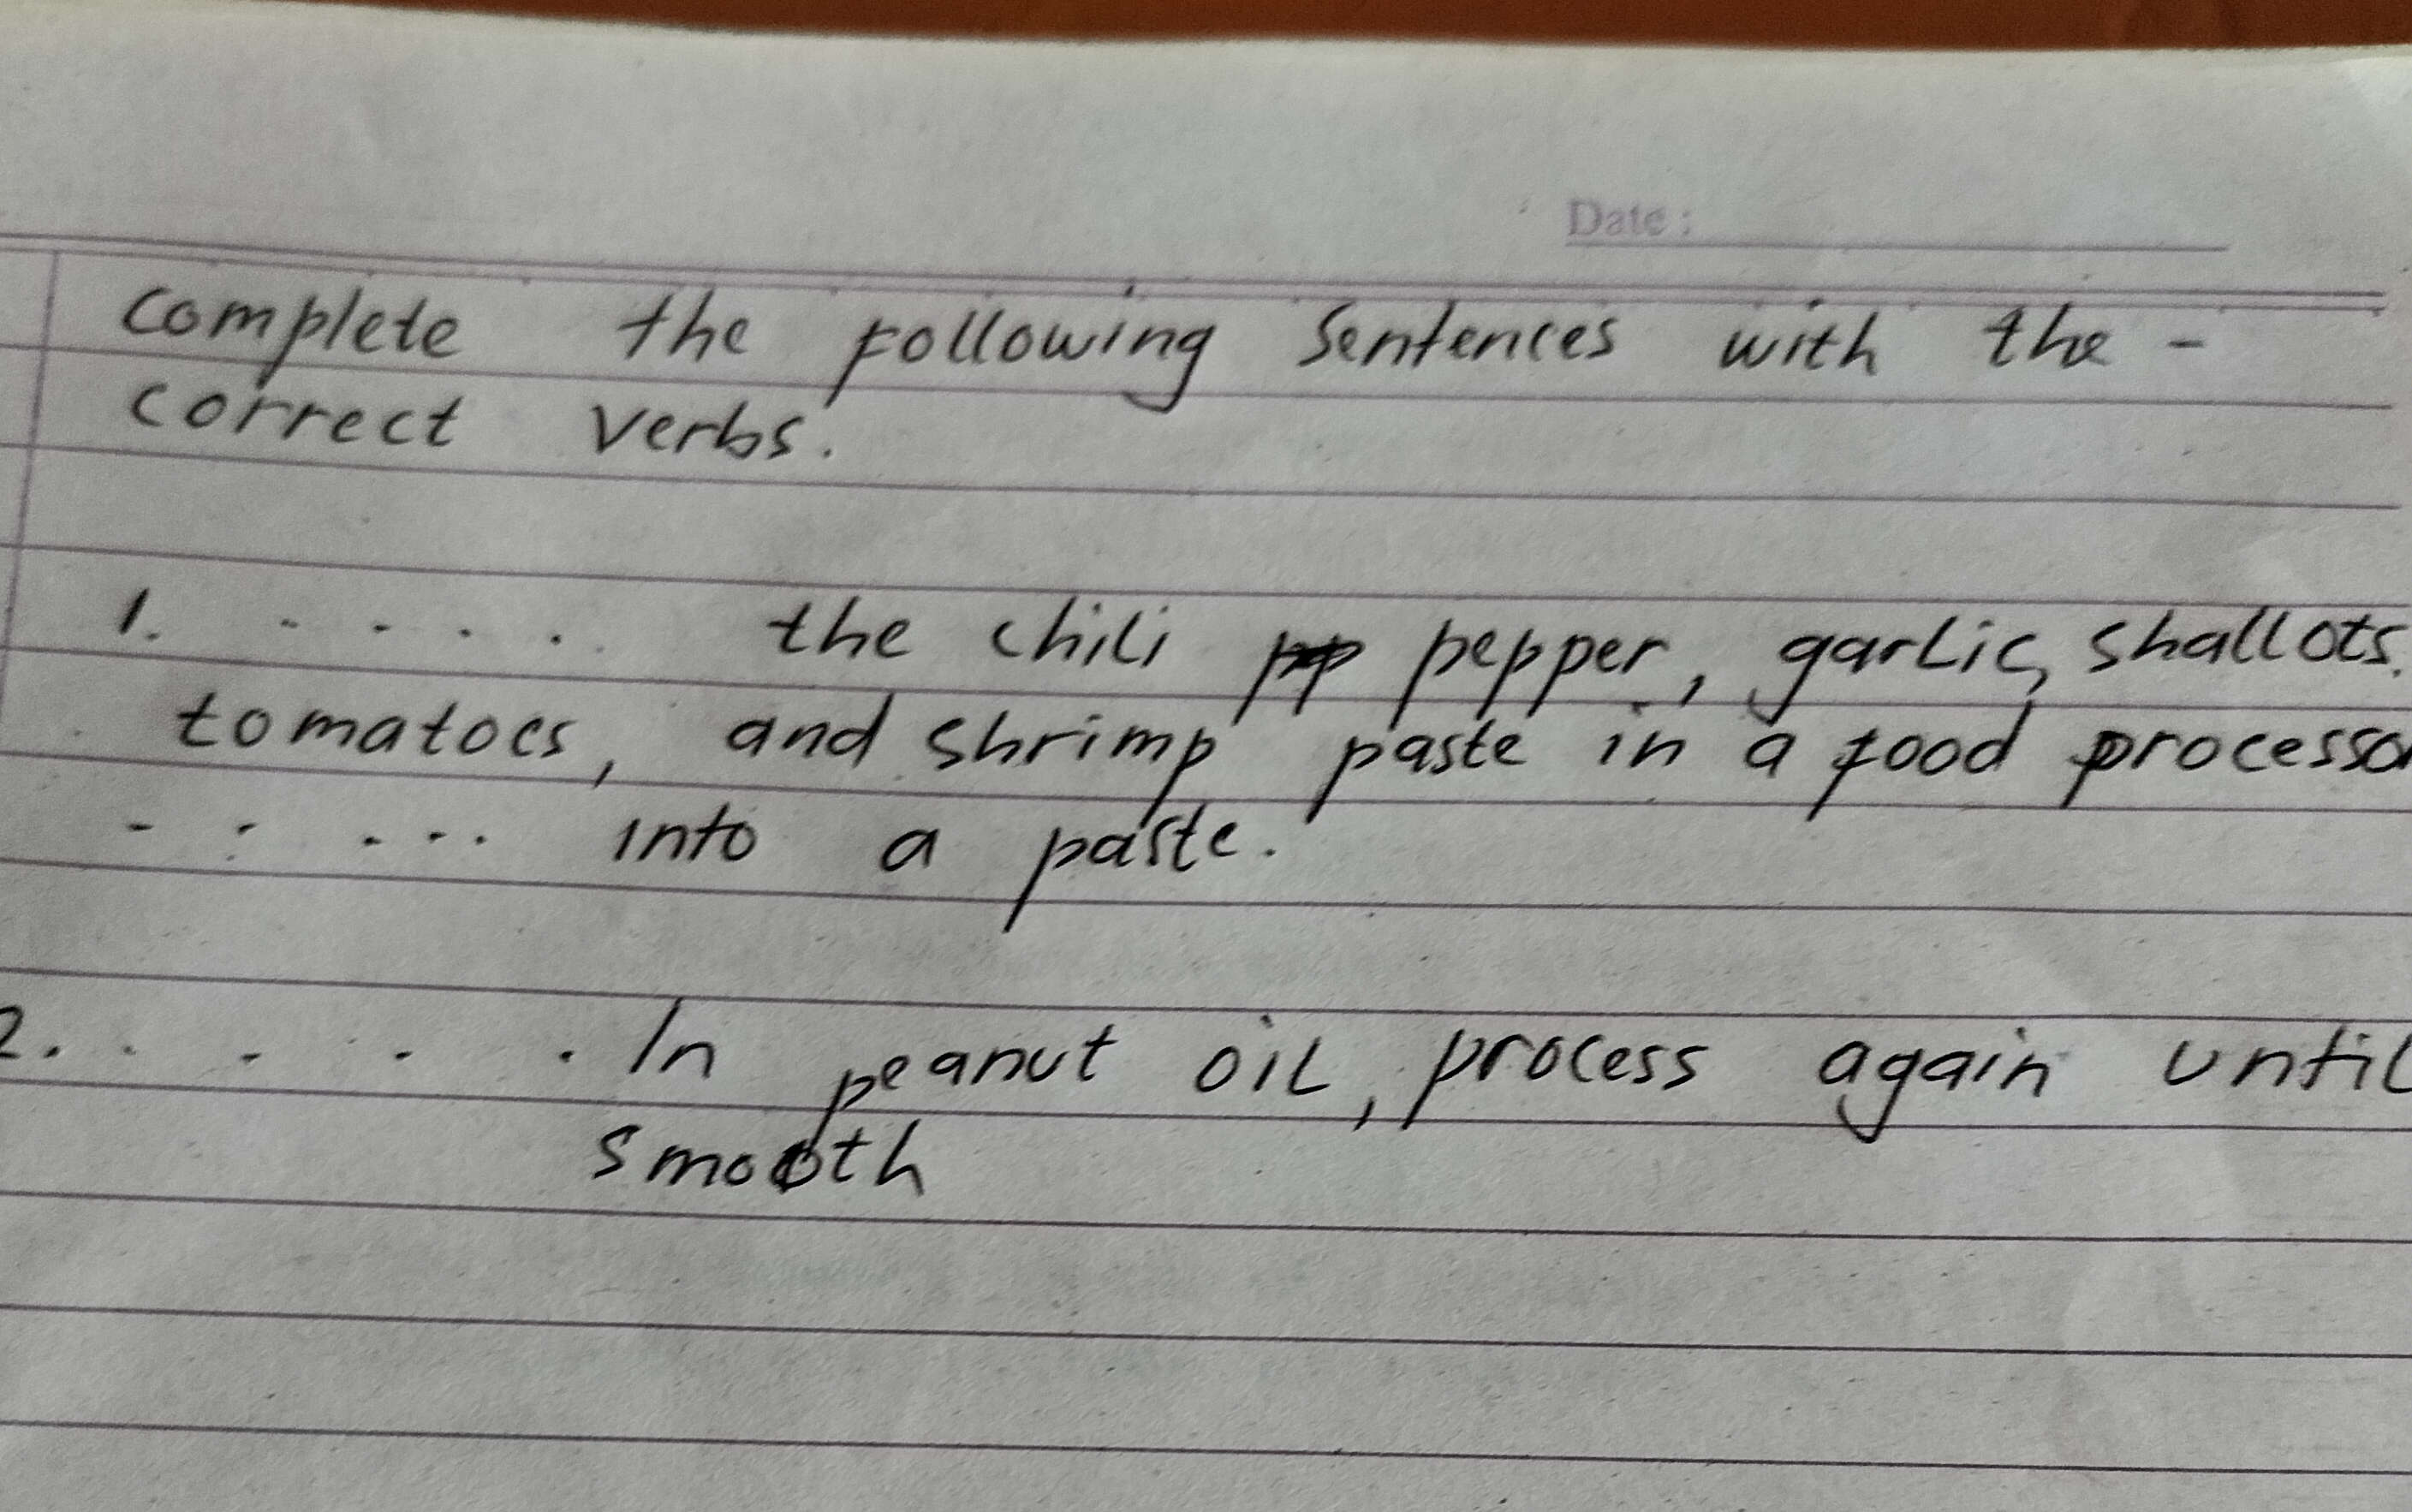 Date :
complete the following sentences with the -
correct verbs.
1. . . . . . the chili pepper, garlic, shallots.
tomatoes, and shrimp paste in a food processo
- . . . . . into a paste.
2. . . . . . In peanut oil, process again until
smooth